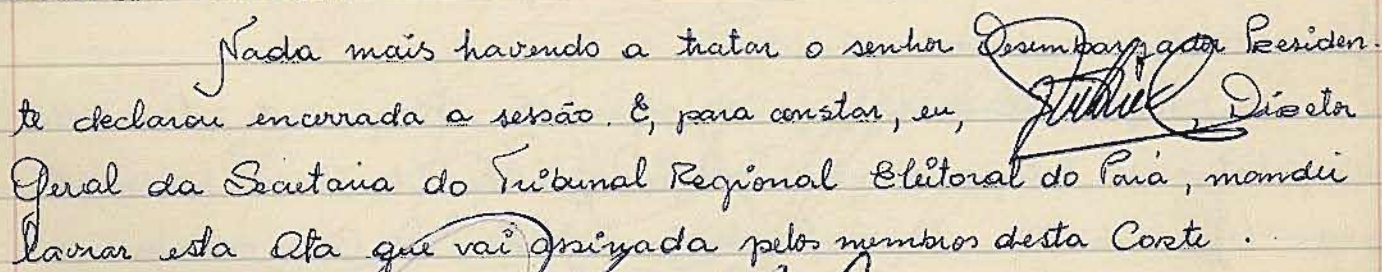 Nada mais havendo a tratar o senhor Desembargador Presiden-
te declarou encerrada a sessão. E, para constar, eu, , Diretor
Geral da Secretaria do Tribunal Regional Eleitoral do Pará, mandei
lavrar esta Ata que vai assinada pelos membros desta Corte.